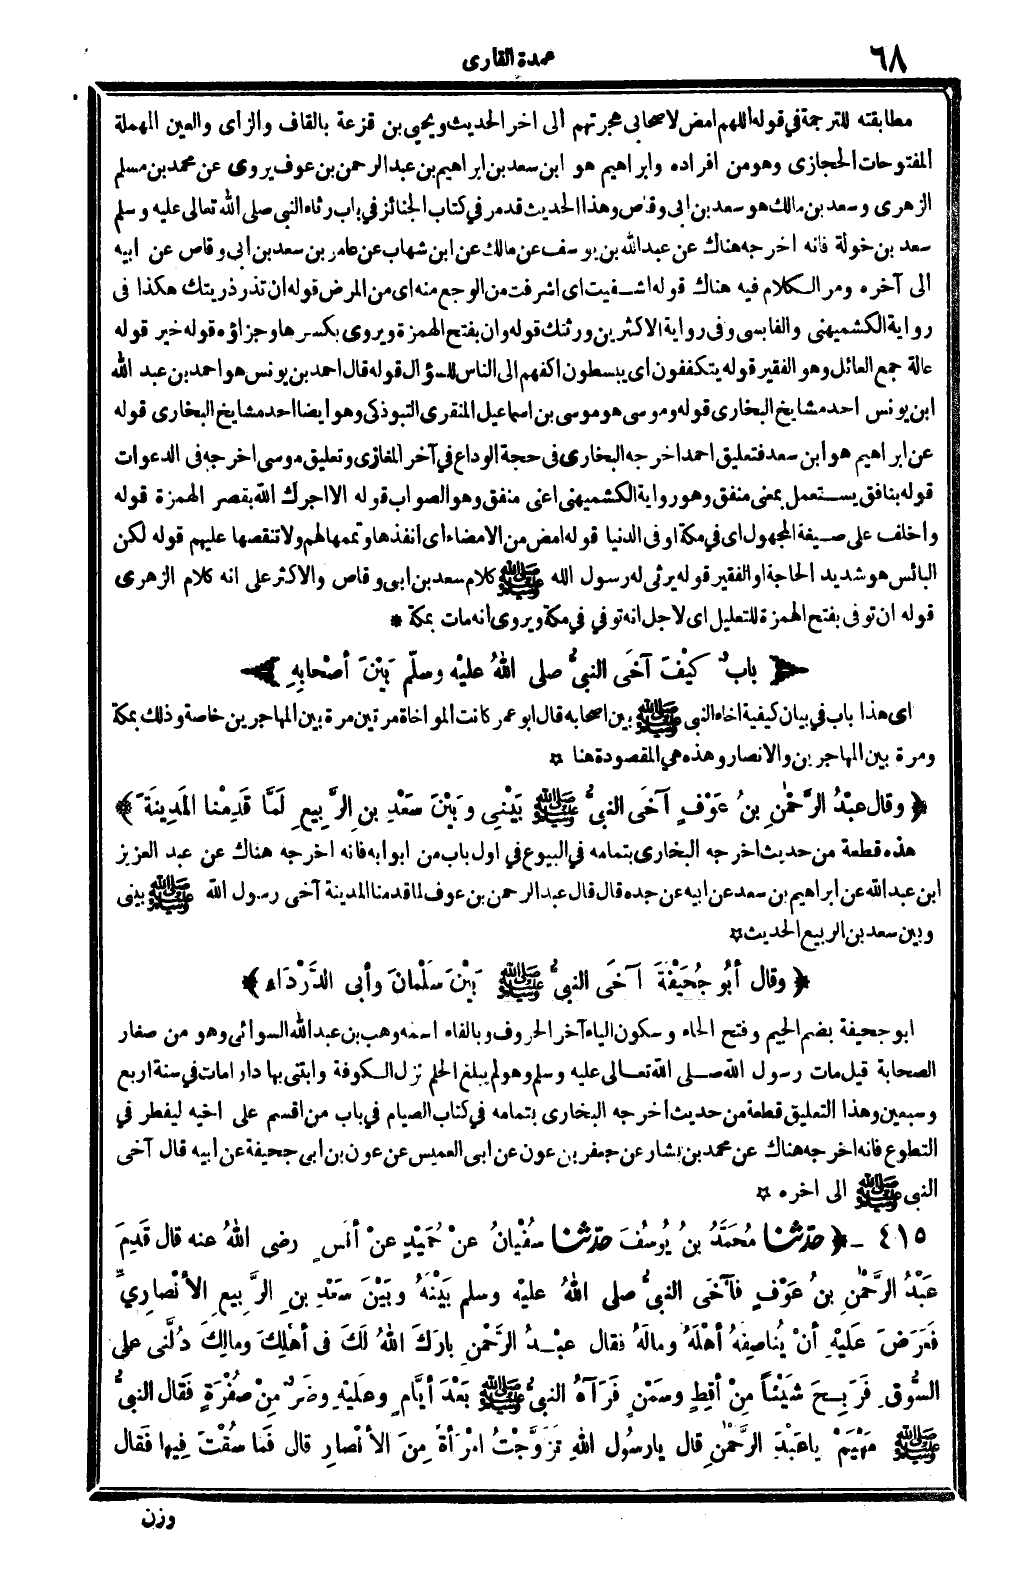 ٦٨
عمدة القارى
مطابقته للترجمة في قوله اللهم امض لاصحابى هجرتهم الى اخر الحديث ويحيى بن قزعة بالقاف والزاى والعين المهملة
المفتوحات الحجازى وهو من افراده وابراهيم هو ابن سعد بن ابراهيم بن عبد الرحمن بن عوف يروى عن محمد بن مسلم
الزهرى وسعد بن مالك هو سعد بن ابى وقاص وهذا الحديث قد مر في كتاب الجنائز في باب رثاء النبى صلى الله تعالى عليه وسلم
سعد بن خولة فانه اخرجه هناك عن عبد الله بن يوسف عن مالك عن ابن شهاب عن عامر بن سعد بن ابى وقاص عن ابيه
الى آخره ومر الكلام فيه هناك قوله اشفيت اى اشرفت من الوجع منه اى من المرض قوله ان تذر ذريتك هكذا فى
رواية الكشميهنى والقابسى وفى رواية الاكثرين ورثتك قوله وان بفتح الهمزة ويروى بكسرها وجزاؤه قوله خير قوله
عالة جمع العائل وهو الفقير قوله يتكففون اى يبسطون اكفهم الى الناس للسؤال قوله قال احمد بن يونس هو احمد بن عبد الله
ابن يونس احد مشايخ البخارى قوله وموسى هو موسى بن اسماعيل المنقرى التبوذكى وهو ايضا احد مشايخ البخارى قوله
عن ابراهيم هو ابن سعد فتعليق احمد اخرجه البخارى فى حجة الوداع في آخر المغازى وتعليق موسى اخرجه فى الدعوات
قوله بنافق يستعمل بمعنى منفق وهو رواية الكشميهنى اعنى منفق وهو الصواب قوله الا اجرك الله بقصر الهمزة قوله
واخلف على صيغة المجهول اى في مكة او فى الدنيا قوله امض من الامضاء اى انفذها وتممها لهم ولا تنقصها عليهم قوله لكن
البائس هو شديد الحاجة او الفقير قوله يرثى له رسول الله ﷺ كلام سعد بن ابى وقاص والاكثر على انه كلام الزهرى
قوله ان توفى بفتح الهمزة للتعليل اى لاجل انه توفي في مكة ويروى انه مات بمكة *
﴿ بابٌ كَيْفَ آخَى النبيُّ صلى اللهُ عليْه وسلّم بَيْنَ أصْحابِهِ ﴾
اى هذا باب في بيان كيفية اخاء النبى ﷺ بين اصحابه قال ابو عمر كانت المواخاة مرتين مرة بين المهاجرين خاصة وذلك بمكة
ومرة بين المهاجرين والانصار وهذه هي المقصودة هنا ✡
﴿ وقال عبْدُ الرَّحْمٰنِ بنُ عَوْفٍ آخَى النبيُّ ﷺ بَيْنِي وبَيْنَ سَعْدِ بنِ الرَّبِيعِ لَمَّا قَدِمْنا المَدِينَةَ ﴾
هذه قطعة من حديث اخرجه البخارى بتمامه في البيوع في اول باب من ابوابه فانه اخرجه هناك عن عبد العزيز
ابن عبد الله عن ابراهيم بن سعد عن ابيه عن جده قال قال عبد الرحمن بن عوف لما قدمنا المدينة آخى رسول الله ﷺ بينى
وبين سعد بن الربيع الحديث ✡
﴿ وقال أبُو جُحَيْفَةَ آخَى النبيُّ ﷺ بَيْنَ سَلْمانَ وأبى الدَّرْدَاءِ ﴾
ابو جحيفة بضم الجيم وفتح الحاء وسكون الياء آخر الحروف وبالفاء اسمه وهب بن عبد الله السوائى وهو من صغار
الصحابة قيل مات رسول الله صلى الله تعالى عليه وسلم وهو لم يبلغ الحلم نزل الكوفة وابتنى بها دارا مات في سنة اربع
وسبعين وهذا التعليق قطعة من حديث اخرجه البخارى بتمامه في كتاب الصيام في باب من اقسم على اخيه ليفطر في
التطوع فانه اخرجه هناك عن محمد بن بشار عن جعفر بن عون عن ابى العميس عن عون بن ابى جحيفة عن أبيه قال آخى
النبى ﷺ الى اخره ✡
٤١٥ ـ ﴿ حدّثنا مُحَمَّدُ بنُ يُوسُفَ حدّثنا سُفْيانُ عنْ حُمَيْدٍ عنْ أنَسٍ رضى اللهُ عنه قال قَدِمَ
عَبْدُ الرَّحْمٰنِ بنُ عَوْفٍ فآخَى النبيُّ صلى اللهُ عليْه وسلم بَيْنَهُ وبَيْنَ سَعْدِ بنِ الرَّبِيعِ الأنْصارِيِّ
فَعَرَضَ عَلَيْهِ أنْ يُناصِفَهُ أهْلَهُ ومالَهُ فقال عبْدُ الرَّحْمٰنِ بارَكَ اللهُ لَكَ فى أهْلِكَ ومالِكَ دُلَّنى على
السُّوقِ فَرَبِحَ شَيْئاً مِنْ أقِطٍ وسَمْنٍ فَرَآهُ النبيُّ ﷺ بَعْدَ أيَّامٍ وعلَيْهِ وضَرٌ مِنْ صُفْرَةٍ فَقال النبيُّ
ﷺ مَهْيَمْ ياعَبْدَ الرَّحْمٰنِ قال يارسُولَ اللهِ تَزَوَّجْتُ امْرَأةً مِنَ الأنْصارِ قال فَما سُقْتَ فِيها فَقال
وزن